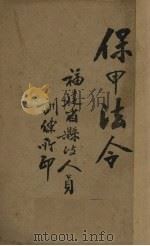 保甲法令
福建省縣政人員
訓練所印